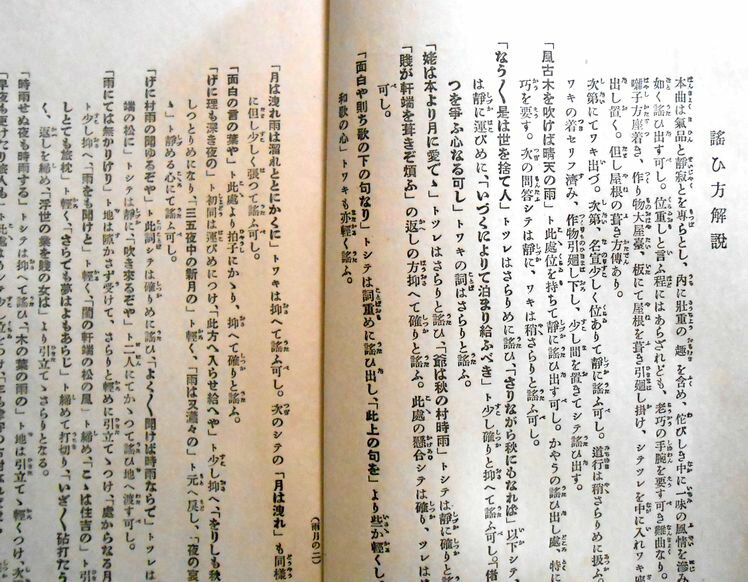 謠ひ方解説
本曲は氣品と靜寂とを專らとし、內に壯重の趣を含め、侘びしき中に一味の風情を
如く謠ひ出す可し。位重しと言ふ程にはあらざれども、老巧の手腕を要す可き難曲なり。
囃子方座着すき、作り物大屋臺、板にて屋根を葺き引廻し掛け、シテツレを中に入れワキ座
出し置く。但し屋根の葺き方傳あり。
次第にてワキ出づ。次第、名宣少しく位ありて靜に謠ふ可し。道行は稍さらりめに扱ふ。
ワキの着セリフ濟み、作物引廻し下し、少し間を置きてシテ謠ひ出す。
「風古木を吹けば晴天の雨」ト此處位を持ちて靜に謠ひ出す可し。かやうの謠ひ出し處、特に
巧を要す。次の問答シテは靜に、ワキは稍さらりと謠ふ可し。
「なう〱是は世を捨て人」トツレはさらりめに謠ひ、「さりながら秋にもなれば」以下シテ
は靜に運びめに、「いづくによりて泊まり給ふべき」ト少し確りと抑へて謠ふ可し。「偖
つを爭ふ心なる可し」トワキの詞はさらりと謠ふ。
「姥は本より月に愛でゝ」トツレはさらりと謠ひ、「爺は秋の村時雨」トシテは靜に確りと謠
「賤が軒端を葺きぞ煩ふ」の返しの方抑へて確りと謠ふ。此處の懸合シテは確り、ツレは
べし。
「面白や則ち歌の下の句なり」トシテは詞重めに謠ひ出し、「此上の句を」より些か輕くし、
和歌の心」トワキも亦輕く謠ふ。
「月は洩れ雨は溜れととにかくに」トワキは抑へて謠ふ可し。次のシテの「月は洩れ」も同樣
に但し少く張つて謠ふ可し。
「面白の言の葉や」ト此處より拍子にかゝり、抑へて確りと謠ふ。
「げに理も深き夜の」ト初同は運びめにつけ、「此方へ入らせ給へや」ト少し抑へ、「をりしも秋
しつとりめになり、「三五夜中の新月の」ト輕く、「雨は忍瀟々の」ト元へ戾し、「夜の哀
ゝ」ト靜める心にて謠ふ可し。
「げに村雨の聞ゆるぞや」ト此詞シテは確りめに謠ひ、「よく〱聞けば時雨ならで」トツレは
端の松に」トシテは靜に、「吹き來るぞや」ト二人にてかゝつて謠ひ地へ渡す可し。
「雨にては無かりけり」ト地は隙かさず受けて、さらりと輕めに引立てゝつけ、「處からなる月
ト少し抑へ、「雨をも聞けと」ト輕く、「閨の軒端の松の風」ト締め、「こゝは住吉の」ト
しとても旅枕」ト輕く、「さらても夢はよもあらじ」ト締めて打切り、「いざ〱砧打たう
く、返しを締め、「浮世の業を賤の女は」より引立てゝさらりとなる。
「時雨せぬ夜も時雨する」トシテは抑へて謠ひ、「木の葉の雨の」ト地は引立てゝ輕くつけ、次
「早夜も更けたり旅人も」ト此處より
(雨月の二)